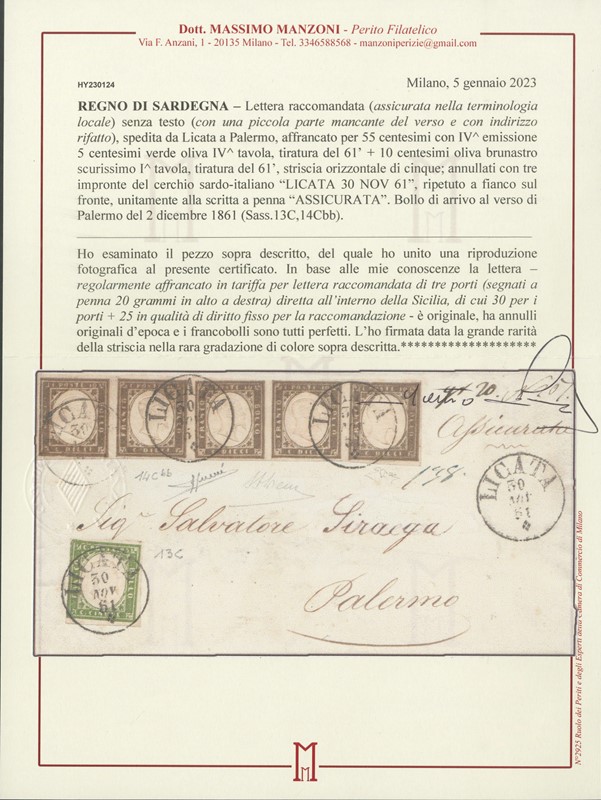 Dott. MASSIMO MANZONI - Perito Filatelico
Via F. Anzani, 1 - 20135 Milano - Tel. 3346588568 - manzoniperizie@gmail.com
HY230124
Milano, 5 gennaio 2023
REGNO DI SARDEGNA – Lettera raccomandata (assicurata nella terminologia
locale) senza testo (con una piccola parte mancante del verso e con indirizzo
rifatto), spedita da Licata a Palermo, affrancato per 55 centesimi con IV^ emissione
5 centesimi verde oliva IV^ tavola, tiratura del 61' + 10 centesimi oliva brunastro
scurissimo I^ tavola, tiratura del 61', striscia orizzontale di cinque; annullati con tre
impronte del cerchio sardo-italiano “LICATA 30 NOV 61”, ripetuto a fianco sul
fronte, unitamente alla scritta a penna “ASSICURATA”. Bollo di arrivo al verso di
Palermo del 2 dicembre 1861 (Sass.13C,14Cbb).
Ho esaminato il pezzo sopra descritto, del quale ho unito una riproduzione
fotografica al presente certificato. In base alle mie conoscenze la lettera –
regolarmente affrancato in tariffa per lettera raccomandata di tre porti (segnati a
penna 20 grammi in alto a destra) diretta all'interno della Sicilia, di cui 30 per i
porti + 25 in qualità di diritto fisso per la raccomandazione - è originale, ha annulli
originali d'epoca e i francobolli sono tutti perfetti. L'ho firmata data la grande rarità
della striscia nella rara gradazione di colore sopra descritta.********************
20
Assicurata
LICATA
30
NOV
61
14Cbb
198
LICATA
30
NOV
61
Sig.r Salvatore Siraega
13C
LICATA
30
NOV
61
Palermo
N°2925 Ruolo dei Periti e degli Esperti della Camera di Commercio di Milano
M